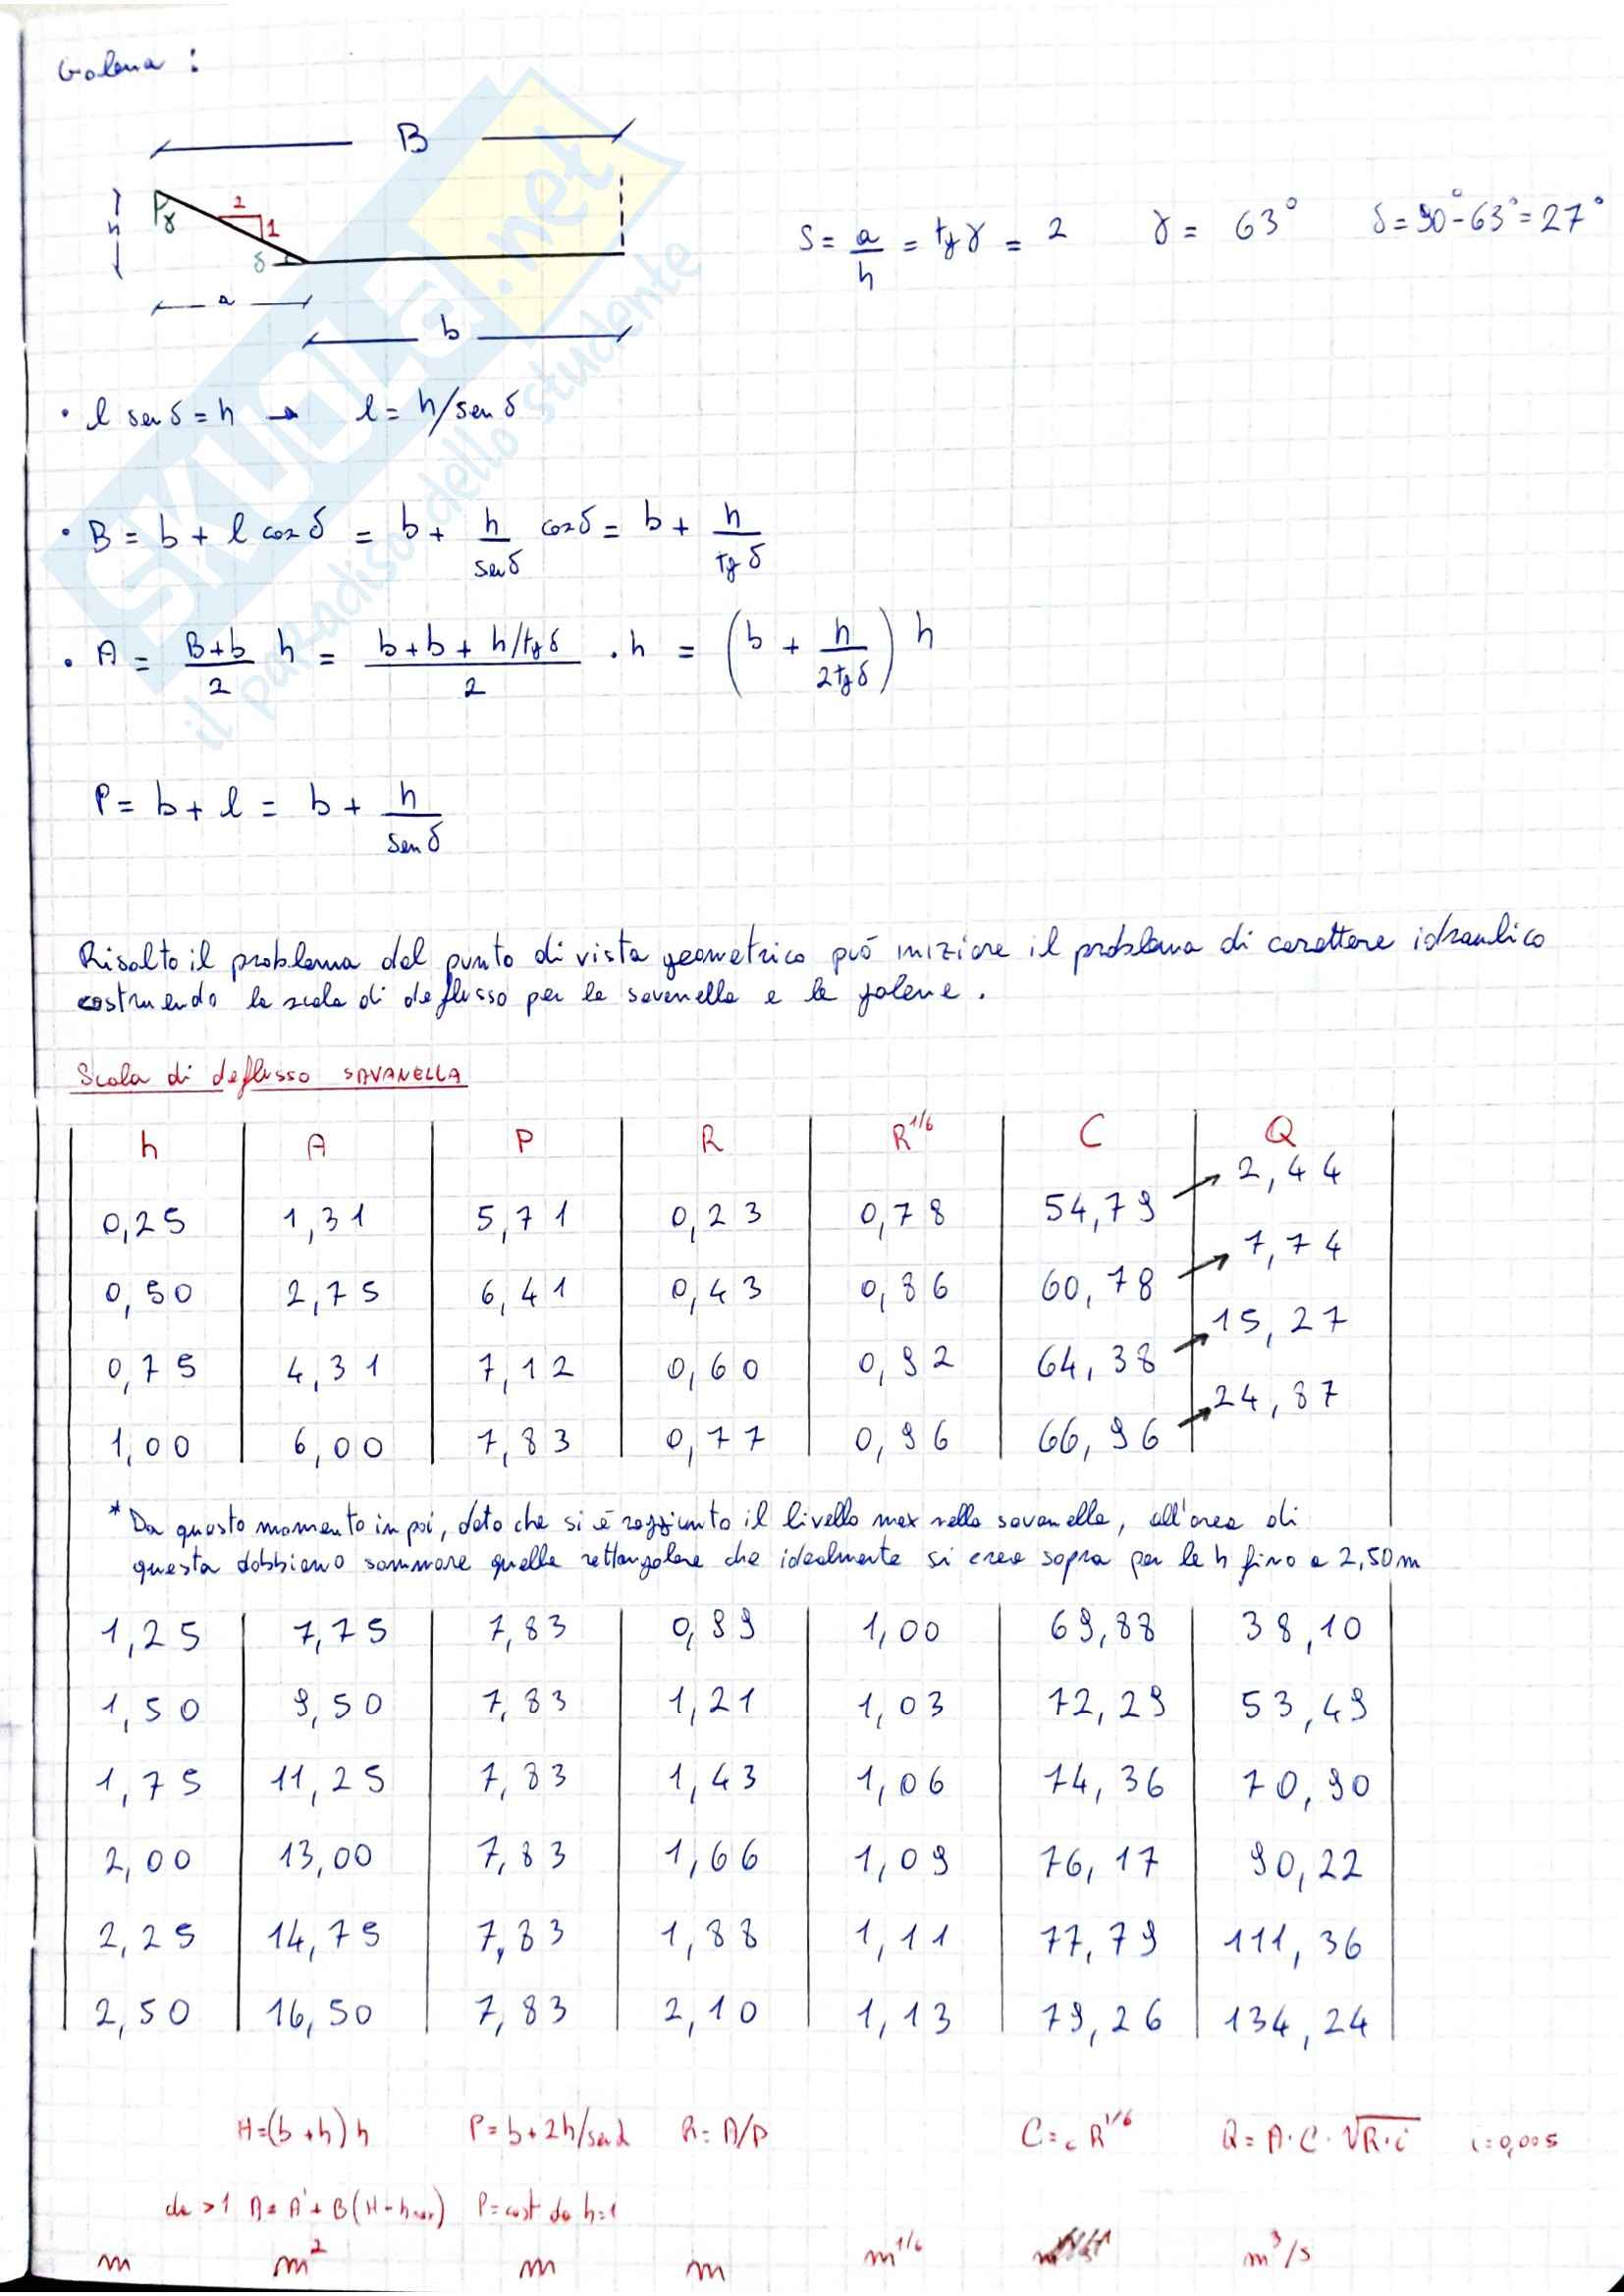 Golena :
B
h
γ
2
1
δ
a
b
S = a/h = tgγ = 2 γ = 63° δ = 90° - 63° = 27°
SKUOLA.net
il paradiso dello studente
• l sen δ = h → l = h/sen δ
• B = b + l cos δ = b + h/sen δ cos δ = b + h/tg δ
• A = (B+b)/2 h = (b+b+h/tg δ)/2 · h = (b + h/2tg δ) h
P = b + l = b + h/sen δ
Risolto il problema dal punto di vista geometrico può iniziare il problema di carattere idraulico
costruendo la scala di deflusso per la savanella e la golene.
Scala di deflusso SAVANELLA
h A P R R^1/6 C Q
0,25 1,31 5,71 0,23 0,78 54,79 → 2,44
0,50 2,75 6,41 0,43 0,86 60,78 → 7,74
0,75 4,31 7,12 0,60 0,92 64,38 → 15,27
1,00 6,00 7,83 0,77 0,96 66,96 → 24,87
* Da questo momento in poi, dato che si è raggiunto il livello max nella savanella, all'area di
questa dobbiamo sommare quella rettangolare che idealmente si crea sopra per le h fino a 2,50 m
1,25 7,75 7,83 0,99 1,00 69,88 38,10
1,50 9,50 7,83 1,21 1,03 72,29 53,49
1,75 11,25 7,83 1,43 1,06 74,36 70,90
2,00 13,00 7,83 1,66 1,09 76,17 90,22
2,25 14,75 7,83 1,88 1,11 77,79 111,36
2,50 16,50 7,83 2,10 1,13 79,26 134,24
A=(b+h)h P=b+2h/senα R=A/P C=cR^1/6 Q=A·C·√R·i i=0,005
da >1 A=A'+B(H-hmax) P=cost da h=1
m m² m m m^1/6 m³/s